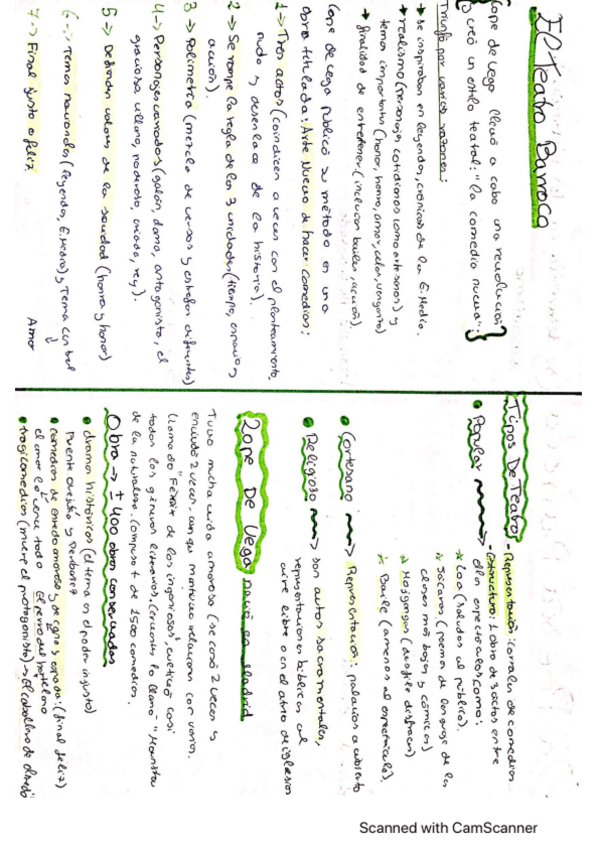 El Teatro Barroco
Lope de Vega llevó a cabo una revolución
creó un estilo teatral: "la comedia nueva".
Triunfó por varias razones:
→ se inspiraban en leyendas, crónicas de la E. Media.
→ realismo (personajes cotidianos como artesanos) y
temas importantes (honor, honra, amor, celos, venganza)
→ finalidad de entretener (incluían bailes, acción).
Lope de Vega publicó su método en una
obra titulada: Arte Nuevo de hacer comedias:
1 → Tres actos (coinciden a veces con el planteamiento,
nudo y desenlace de la historia).
2 → Se rompe la regla de las 3 unidades (tiempo, espacio y
acción).
3 → Polimetría (mezcla de versos y estrofas diferentes)
4 → Personajes variados (galán, dama, antagonista, el
gracioso, villano, poderoso, criada, rey).
5 → Defienden valores de la sociedad (honra y honor)
6 → Temas nacionales (leyendas, E. Media) y Tema central
↓
Amor
7 → Final justo o feliz.
Tipos De Teatro
• Popular → - Representación: corrales de comedias
- Estructura: 1 obra de 3 actos entre
ellos espectáculos como:
* Loa (saludos al público).
* Jácaras (poema de lenguaje de las
clases más bajas y cómicas)
* Mojigangas (desfile disfraces)
* Baile (ameniza el espectáculo).
• Cortesano → Representación: palacios a cubierto
• Religioso → son autos sacramentales,
representaciones bíblicas al
aire libre o en el atrio de iglesias
Lope De Vega nació en Madrid
Tuvo mucha vida amorosa (se casó 2 veces y
enviudó 2 veces, aunque mantuvo relaciones con varias.
Llamado "Fénix de los ingenios", cultivó casi
todos los géneros literarios, Cervantes lo llamó "Monstruo
de la naturaleza. Compuso + de 1500 comedias.
Obra → ± 400 obras conservadas
• dramas históricos (el tema es el poder injusto)
Fuente ovejuna y Peribáñez
• comedias de enredo amoroso y de capa y espada: (final feliz)
el amor lo vence todo El perro del hortelano
• tragicomedias (muere el protagonista) → El caballero de Olmedo
Scanned with CamScanner